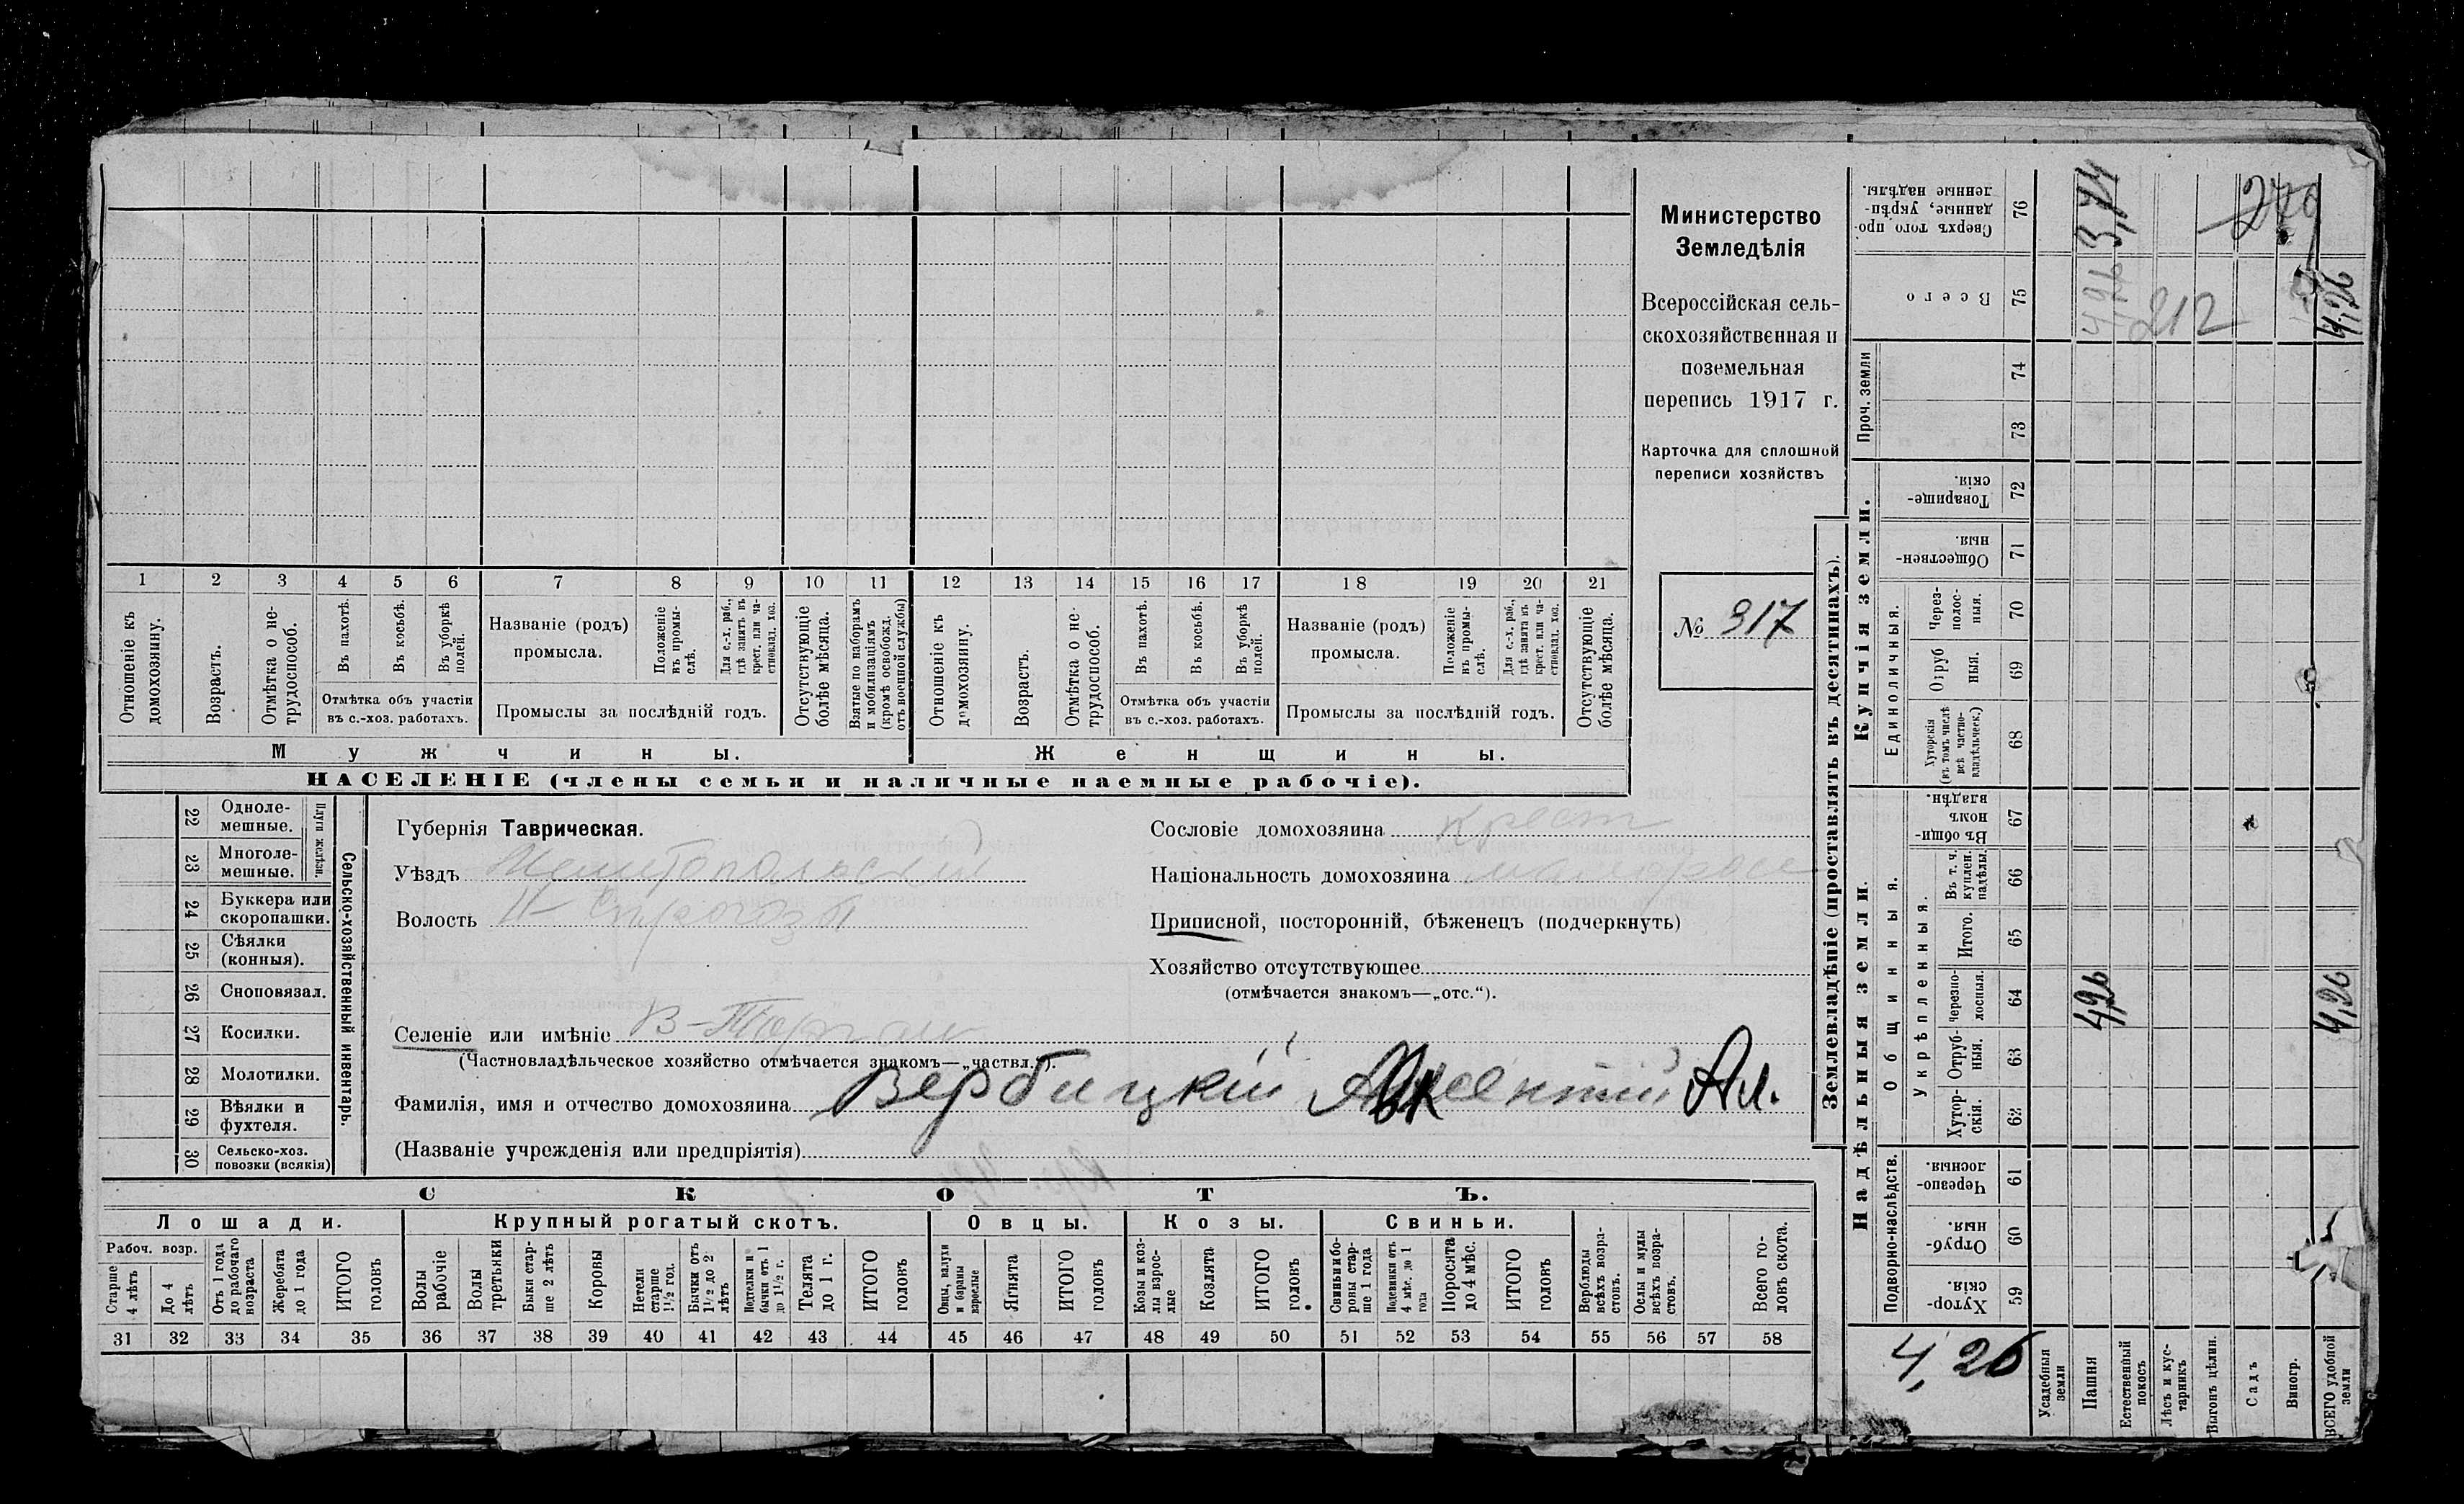 Министерство
Земледѣлія
Всероссійская сель-
скохозяйственная и
поземельная
перепись 1917 г.
Карточка для сплошной
переписи хозяйствъ
№ 317
1 2 3 4 5 6 7 8 9 10 11 12 13 14 15 16 17 18 19 20 21
Отношеніе къ домохозяину.
Возрастъ.
Отмѣтка о не-трудоспособ.
Въ пахотѣ.
Въ косьбѣ.
Въ уборкѣ полей.
Отмѣтка объ участіи
въ с.-хоз. работахъ.
Названіе (родъ)
промысла.
Положеніе въ промы-слѣ.
Для с.-х. раб., гдѣ занятъ въ крест. или ча-стновлад. хоз.
Промыслы за послѣдній годъ.
Отсутствующіе болѣе мѣсяца.
Взятые по наборамъ и мобилизаціямъ (кромѣ освобожд. отъ военной службы)
Отношеніе къ домохозяину.
Возрастъ.
Отмѣтка о не-трудоспособ.
Въ пахотѣ.
Въ косьбѣ.
Въ уборкѣ полей.
Отмѣтка объ участіи
въ с.-хоз. работахъ.
Названіе (родъ)
промысла.
Положеніе въ промы-слѣ.
Для с.-х. раб., гдѣ занята въ крест. или ча-стновлад. хоз.
Промыслы за послѣдній годъ.
Отсутствующіе болѣе мѣсяца.
Мужчины.
Женщины.
НАСЕЛЕНІЕ (члены семьи и наличные наемные рабочіе).
22 Одноле-мешные.
23 Многоле-мешные.
Плуги желѣзн.
24 Буккера или скоропашки.
25 Сѣялки (конныя).
26 Сноповязал.
27 Косилки.
28 Молотилки.
29 Вѣялки и фухтеля.
30 Сельско-хоз. повозки (всякія)
Сельско-хозяйственный инвентарь.
Губернія Таврическая.
Уѣздъ Мелитопольский
Волость Н-Сѣрогозы
Селеніе или имѣніе В-Торгаи
(Частновладѣльческое хозяйство отмѣчается знакомъ—„частвл.“).
Фамилія, имя и отчество домохозяина Вербицкій Авксентій Ал.
(Названіе учрежденія или предпріятія)
Сословіе домохозяина крест
Національность домохозяина малоросс
Приписной, посторонній, бѣженецъ (подчеркнуть)
Хозяйство отсутствующее
(отмѣчается знакомъ—„отс.“).
СКОТЪ.
Лошади. Крупный рогатый скотъ. Овцы. Козы. Свиньи.
Рабоч. возр.
Старше 4 лѣтъ
До 4 лѣтъ
Отъ 1 года до рабочаго возраста
Жеребята до 1 года
ИТОГО головъ
Волы рабочіе
Волы третьяки
Быки стар-ше 2 лѣтъ
Коровы
Нетели старше 1½ год.
Бычки отъ 1½ до 2 лѣтъ
Подтелки и бычки отъ 1 до 1½ г.
Телята до 1 г.
ИТОГО головъ
Овцы, валухи и бараны взрослые
Ягнята
ИТОГО головъ
Козы и коз-лы взрос-лые
Козлята
ИТОГО головъ
Свиньи и бо-ровы стар-ше 1 года
Подсвинки отъ 4 мѣс. до 1 года
Поросята до 4 мѣс.
ИТОГО головъ
Верблюды всѣхъ возра-стовъ.
Ослы и мулы всѣхъ возра-стовъ.
Всего го-ловъ скота.
31 32 33 34 35 36 37 38 39 40 41 42 43 44 45 46 47 48 49 50 51 52 53 54 55 56 57 58
Землевладѣніе (проставлять въ десятинахъ).
Надѣльныя земли.
Купчія земли.
Проч. земли
Подворно-наслѣдств.
Общинныя.
Укрѣпленныя.
Единоличныя.
Сверхъ того про-данные, укрѣп-ленные надѣлы. 76
3,74
270
Всего 75
4,26
212
4,26
74
73
Товарище-скія. 72
Обществен-ныя. 71
Через-полос-ныя. 70
Отруб ныя. 69
Хуторскія (въ томъ числѣ всѣ частно-владѣльческ.) 68
Въ общи-номъ владѣн. 67
Въ т. ч. куплен. надѣлы. 66
Итого. 65
Черезпо-лосныя. 64
4,26
4,26
Отруб-ныя. 63
Хутор-скія. 62
Черезпо-лосныя. 61
Отруб-ныя. 60
Хутор-скія. 59
4,26
Усадебныя земли
Пашня
Естественный покосъ
Лѣсъ и кус-тарникъ
Выгонъ цѣлин.
Садъ
Виногр.
ВСЕГО удобной земли